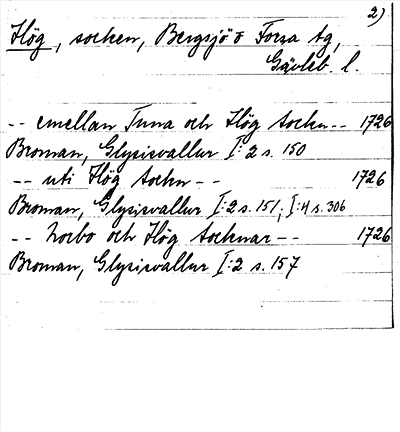 2)
Hög, socken, Bergsjö o Forsa tg,
Gävleb. l.
-- emellan Tuna och Hög Sockn-- 1726
Broman, Glysisvallur I:2 s. 150
-- uti Hög Sockn -- 1726
Broman, Glysisvallur I:2 s. 151, I:4 s. 306
-- Norbo och Hög Socknar -- 1726
Broman, Glysisvallur I:2 s. 157